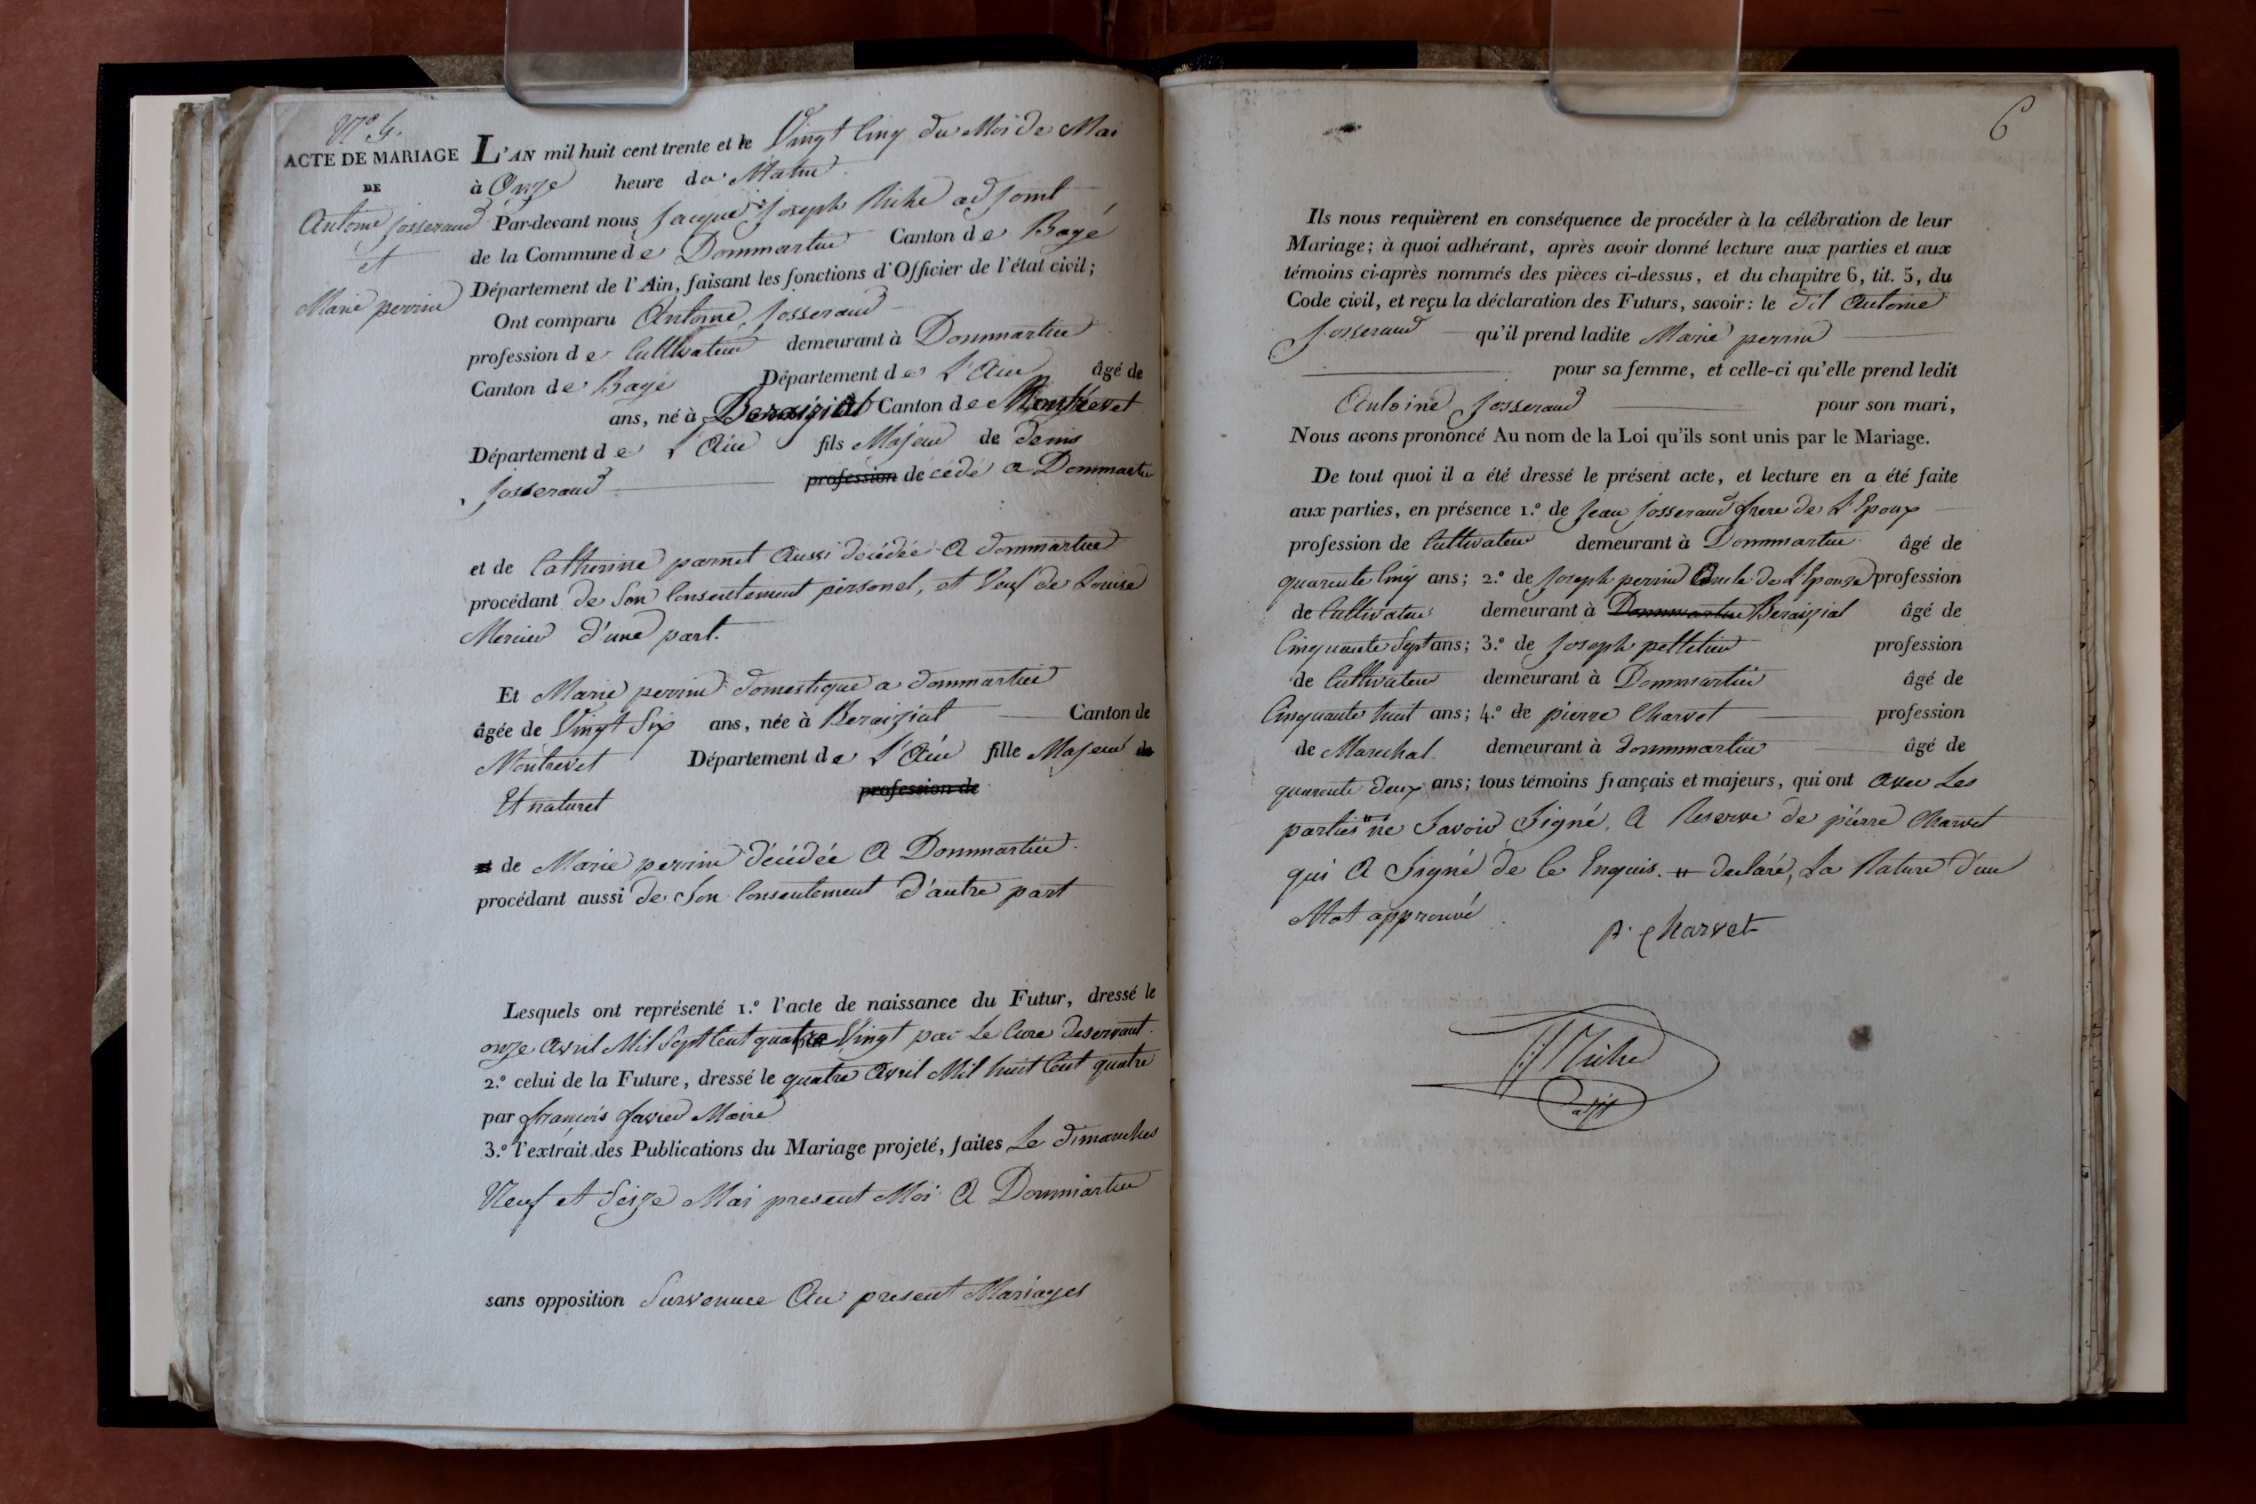 N.o
ACTE DE MARIAGE
DE
Antoine Josserand
et
Marie perrin
L'AN mil huit cent trente et le Vingt Cinq du Mois de Mai
à Onze heure du Matin
Par-devant nous Jacque Joseph adjoint
de la Commune de Dommartin Canton de Bagé
Département de l'Ain, faisant les fonctions d'Officier de l'état civil;
Ont comparu Antoine Josserand
profession de Cultivateur demeurant à Dommartin
Canton de Bagé Département de L'Ain âgé de
ans, né à Beraizial Canton de Montrevel
Département de L'Ain fils Majeur de denis
Josserand profession décédé a Dommartin
et de Catherine Aussi décédée A dommartin
procédant de Son Consentement personel, et Veuf de Louise
Mercier d'une part.
Et Marie perrin domestique a dommartin
âgée de Vingt Six ans, née à Beraizial Canton de
Montrevel Département de L'Ain fille Majeur de
Et naturel profession de
et de Marie perrin décédée A Dommartin
procédant aussi de Son Consentement d'autre part
Lesquels ont représenté 1.º l'acte de naissance du Futur, dressé le
onze Avril Mil Sept Cent quatre Vingt par Le Cure deservant
2.º celui de la Future, dressé le quatre Avril Mil huit Cent quatre
par françois Maire
3.º l'extrait des Publications du Mariage projeté, faites Le dimanches
Neuf et Seize Mai present Moi A Dommartin
sans opposition Survenue Au present Mariages
6
Ils nous requièrent en conséquence de procéder à la célébration de leur
Mariage; à quoi adhérant, après avoir donné lecture aux parties et aux
témoins ci-après nommés des pièces ci-dessus, et du chapitre 6, tit. 5, du
Code civil, et reçu la déclaration des Futurs, savoir: le dit Antoine
Josserand qu'il prend ladite Marie perrin
pour sa femme, et celle-ci qu'elle prend ledit
Antoine Josserand pour son mari,
Nous avons prononcé Au nom de la Loi qu'ils sont unis par le Mariage.
De tout quoi il a été dressé le présent acte, et lecture en a été faite
aux parties, en présence 1.º de Jean Josserand frere de L'Epoux
profession de Cultivateur demeurant à Dommartin âgé de
quarente Cinq ans; 2.º de Joseph perrin Oncle de L'Epouse profession
de Cultivateur demeurant à Dommartin Beraizial âgé de
Cinquante Sept ans; 3.º de Joseph pelletier profession
de Cultivateur demeurant à Dommartin âgé de
Cinquante huit ans; 4.º de pierre Charvet profession
de Marechal demeurant à dommartin âgé de
quarente deux ans; tous témoins français et majeurs, qui ont avec Les
parties # ne Savoir Signé, A Reserve de pierre Charvet
qui A Signé de Ce Enquis. # declaré, La Rature d'un
Mot approuvé
p. Charvet
adjt